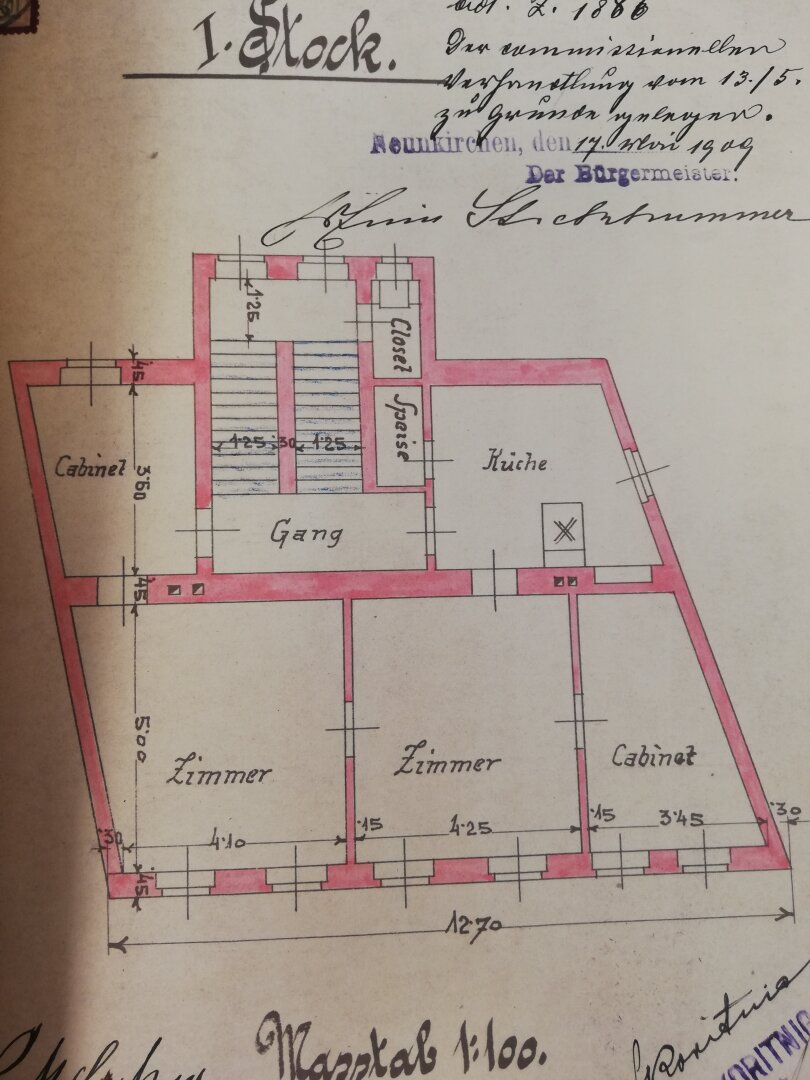 I. Stock.
Z. 1886
Der commissionellen
Verhandtlung vom 13./5.
zu grunde gelegen.
Neunkirchen, den 17. Mai 1909
Der Bürgermeister:
1·25
Closet
45
Speise
1·25 30 1·25
Cabinet
3·60
Küche
Gang
45
5·00
Zimmer
Zimmer
Cabinet
30
4·10
15
4·25
15
3·45
30
45
12·70
Masstab 1:100.